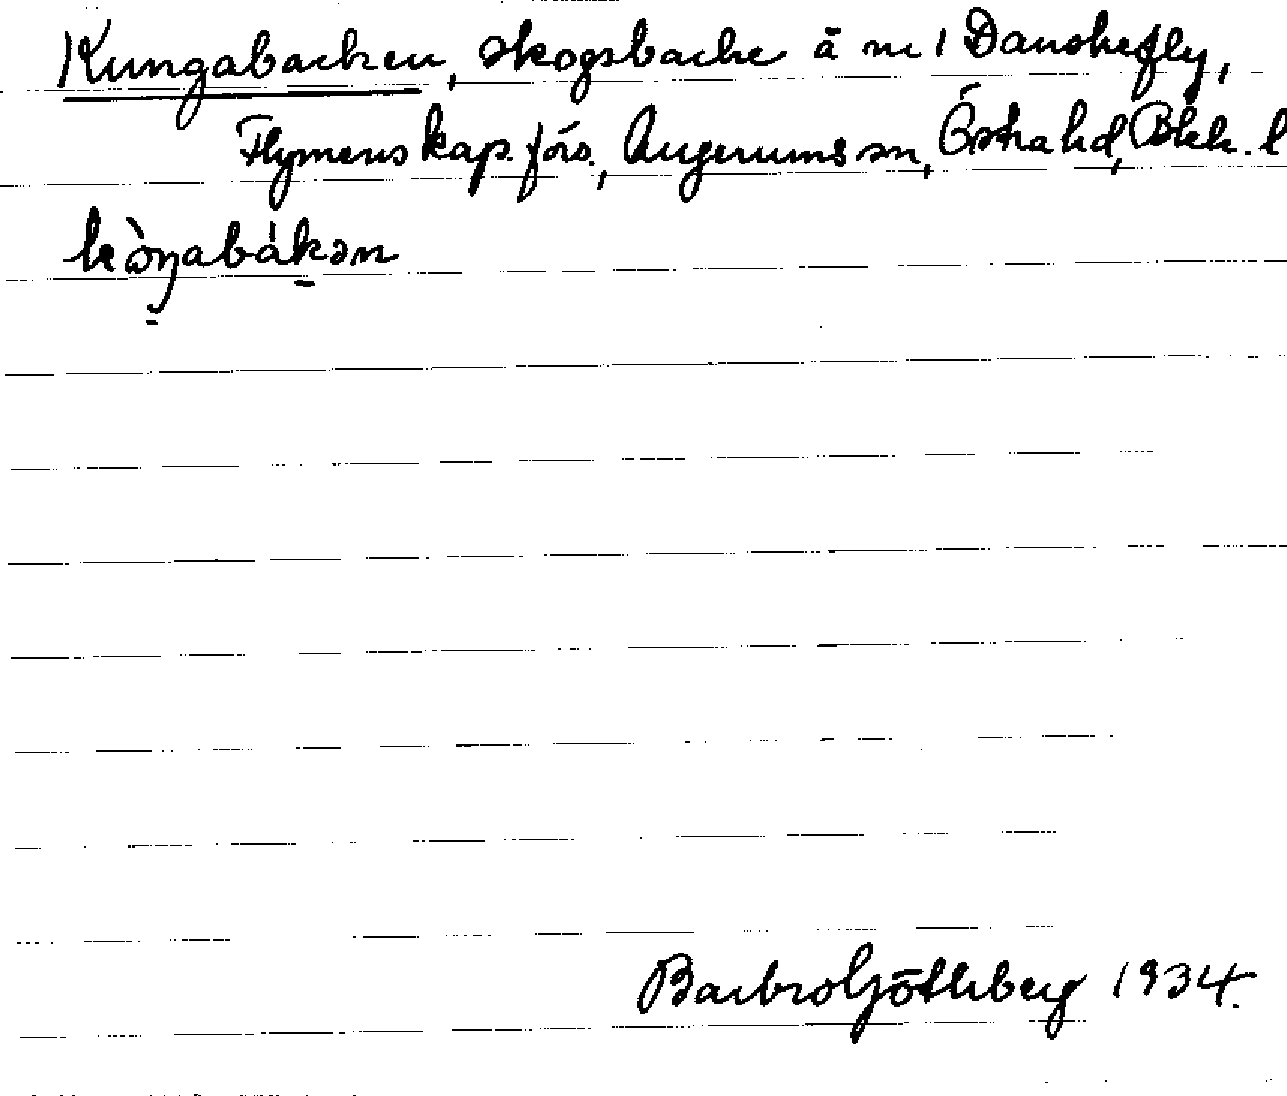 Kungabacken, skogsbacke å nr 1 Danskefly,
Flymens kap. förs., Augerums sn, Östra hd, Blek. l
kòŋabákən
Barbro Göthberg 1934.